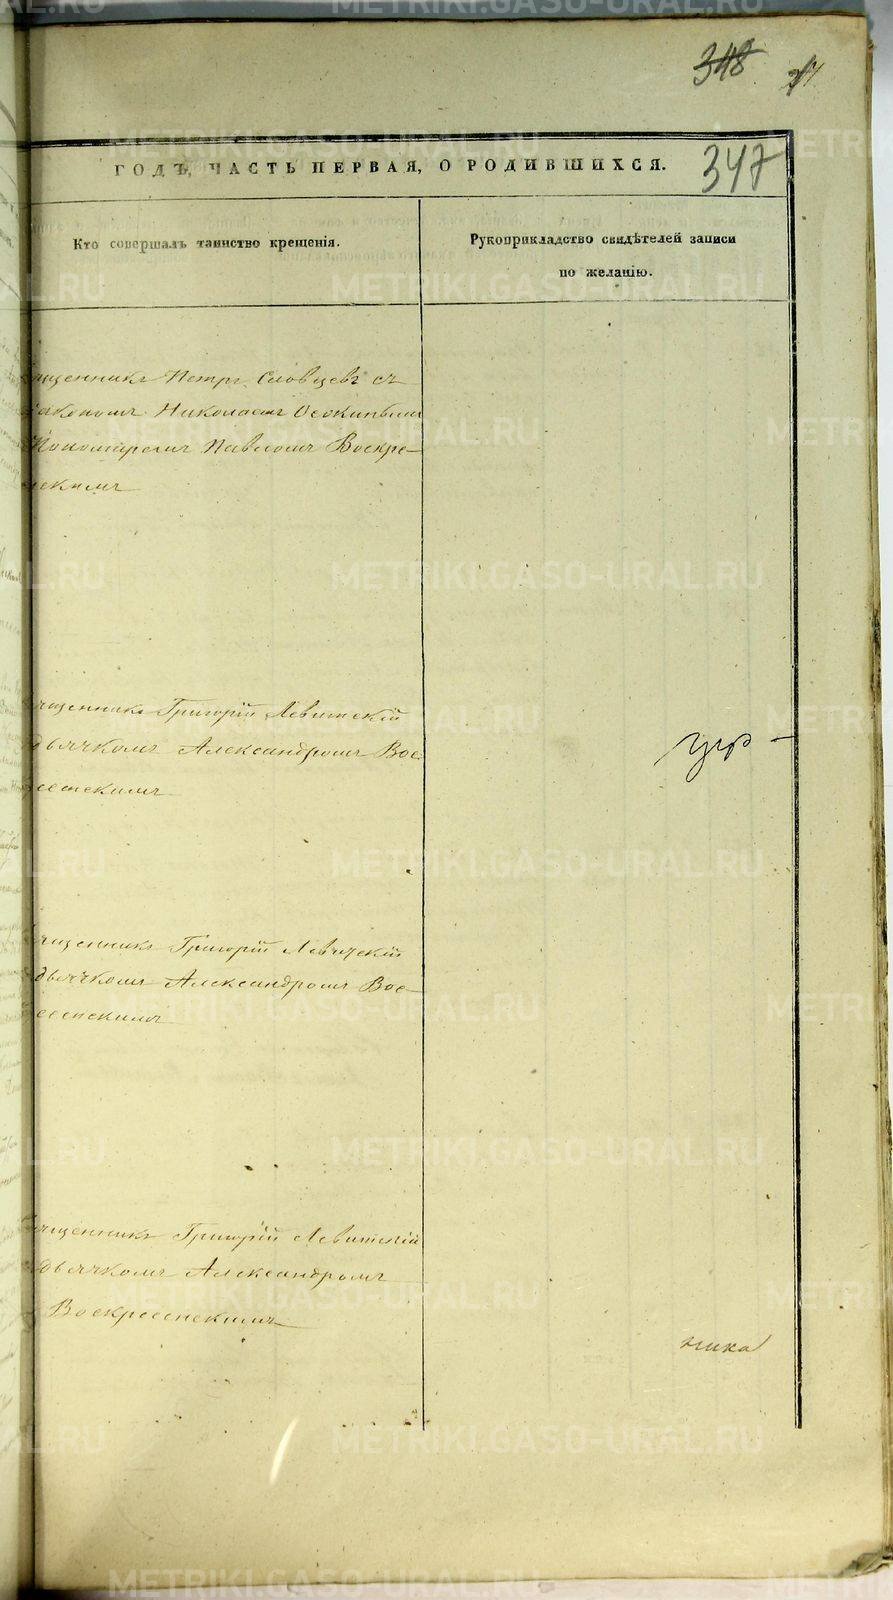 348
347
ГОДЪ, ЧАСТЬ ПЕРВАЯ, О РОДИВШИХСЯ.
Кто совершалъ таинство крещенія.
Рукоприкладство свидѣтелей записи
по желанію.
щенникъ Петръ Словцевъ съ
іакономъ Николаемъ Осокинымъ
Пономаремъ Павломъ Воскре-
скимъ
ященникъ Григорій Левитскій
дьячкомъ Александромъ Вос-
сенскимъ
ященникъ Григорій Левитскій
дьячкомъ Александромъ Вос-
сенскимъ
ященникъ Григорій Левитскій
дьячкомъ Александромъ
Воскресенскимъ
ника
METRIKI.GASO-URAL.RU